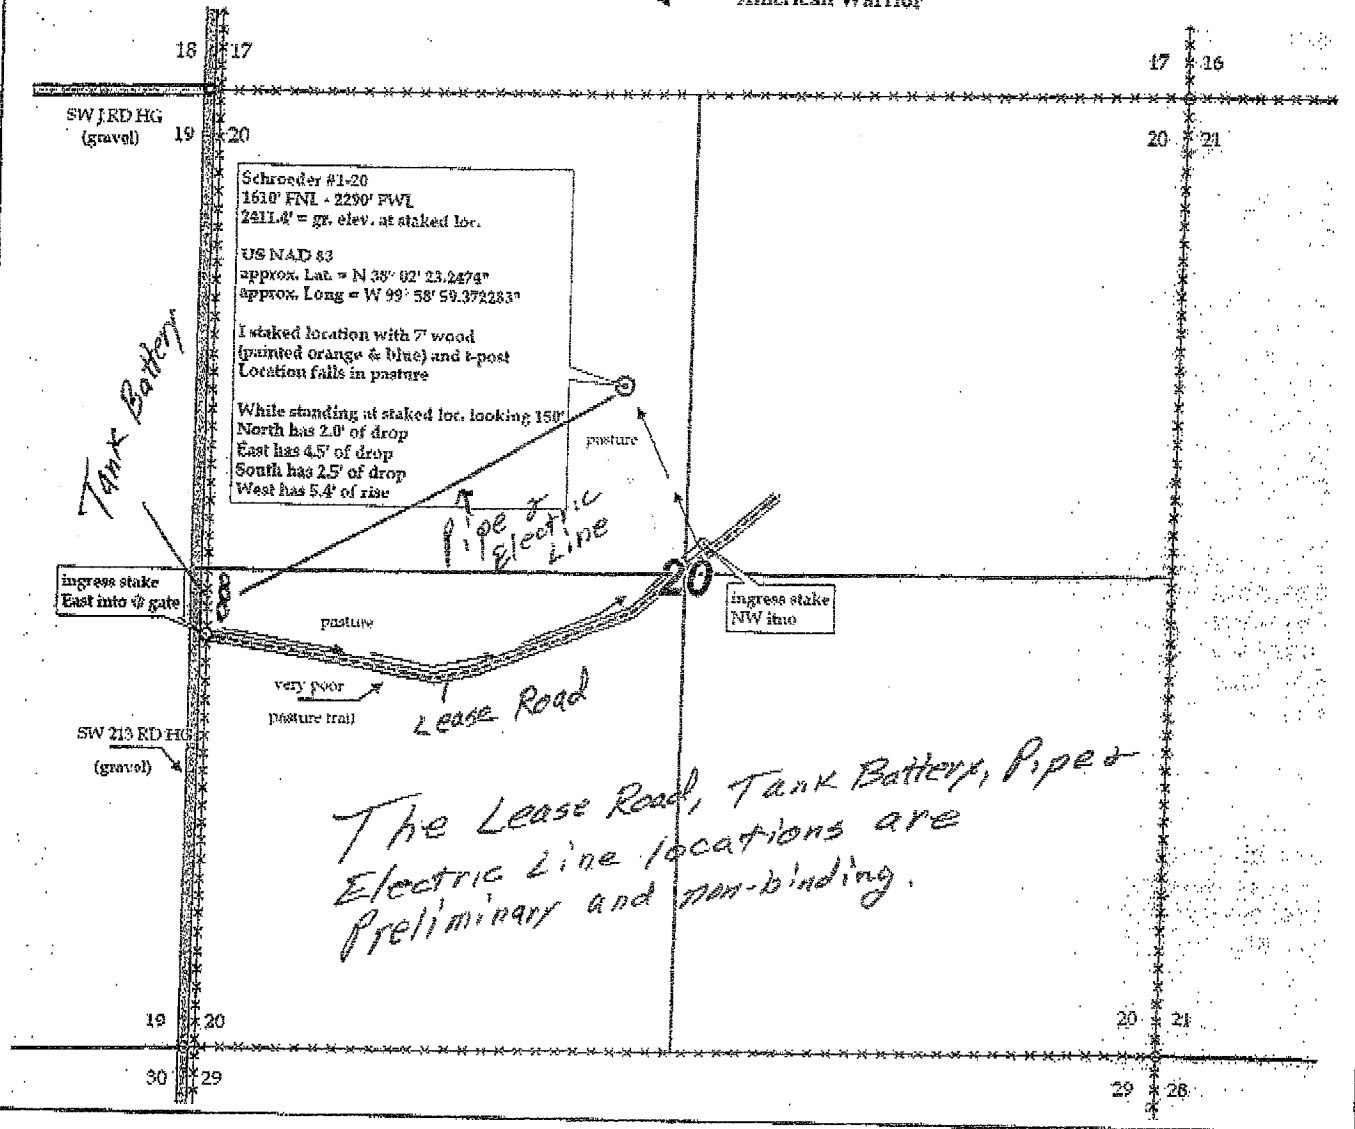 American Warrior
18 17
17 16
SW J RD HG
(gravel)
19 20
20 21
Schroeder #1-20
1610' FNL - 2290' FWL
2411.4' = gr. elev. at staked loc.
US NAD 83
approx. Lat. = N 38° 02' 23.2474"
approx. Long = W 99° 58' 59.372283"
I staked location with 7' wood
(painted orange & blue) and t-post
Location falls in pasture
While standing at staked loc. looking 150'
North has 2.0' of drop
East has 4.5' of drop
South has 2.5' of drop
West has 5.4' of rise
Tank Battery
pasture
Pipe &
Electric
Line
ingress stake
East into @ gate
20
ingress stake
NW into
pasture
very poor
pasture trail
Lease Road
SW 213 RD HG
(gravel)
The Lease Road, Tank Battery, Pipe &
Electric Line locations are
Preliminary and non-binding.
19 20
20 21
30 29
29 28